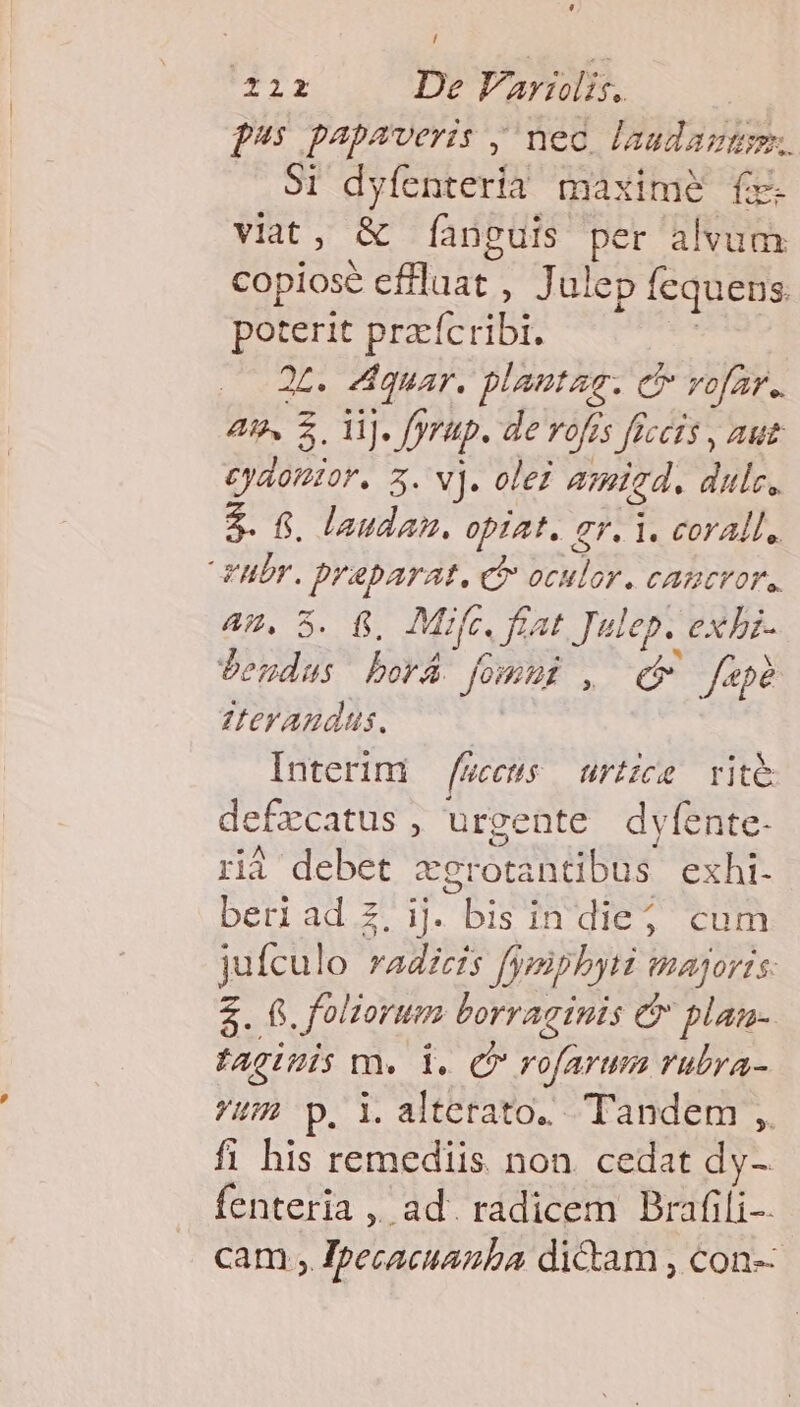 112 De Variolis.
pus papaveris, nec laudanum.
Si dyſenteria maximè ſæ-
viat, & ſanguis per alvum
copiosè effluat, Julep ſequens
poterit præſcribi.
♃. Aquar. plantag. & roſar.
an. ℥. iij. ſyrup. de roſis ſiccis, aut
cydonior. ʒ. vj. olei amigd. dulc.
℥. ß. laudan. opiat. gr. i. corall.
rubr. præparat. & oculor. cancror.
an. ʒ. ß. Miſc. fiat Julep. exhi-
bendus horâ ſomni, & ſæpè
iterandus.
Interim ſuccus urticæ ritè
defæcatus, urgente dyſente-
riâ debet ægrotantibus exhi-
beri ad ℥. ij. bis in die, cum
juſculo radicis ſymphyti majoris
℥. ß. foliorum borraginis & plan-
taginis m. i. & roſarum rubra-
rum p. i. alterato. Tandem,
ſi his remediis non cedat dy-
ſenteria, ad radicem Braſili-
cam, Ipecacuanha dictam, con-